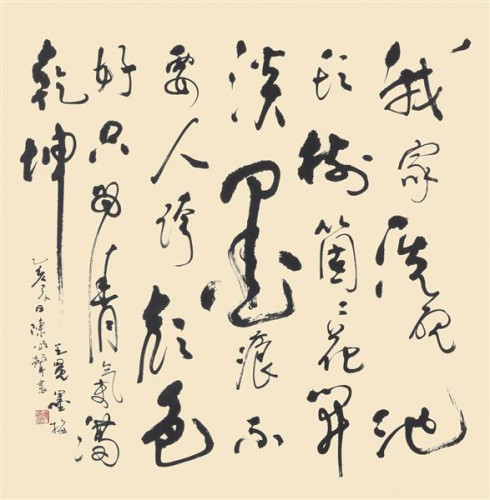 我家洗硯池
頭樹箇〻花開
淡墨痕不
要人誇顏色
好只留清氣滿
乾坤
王冕墨梅
乙亥冬日陳聲書